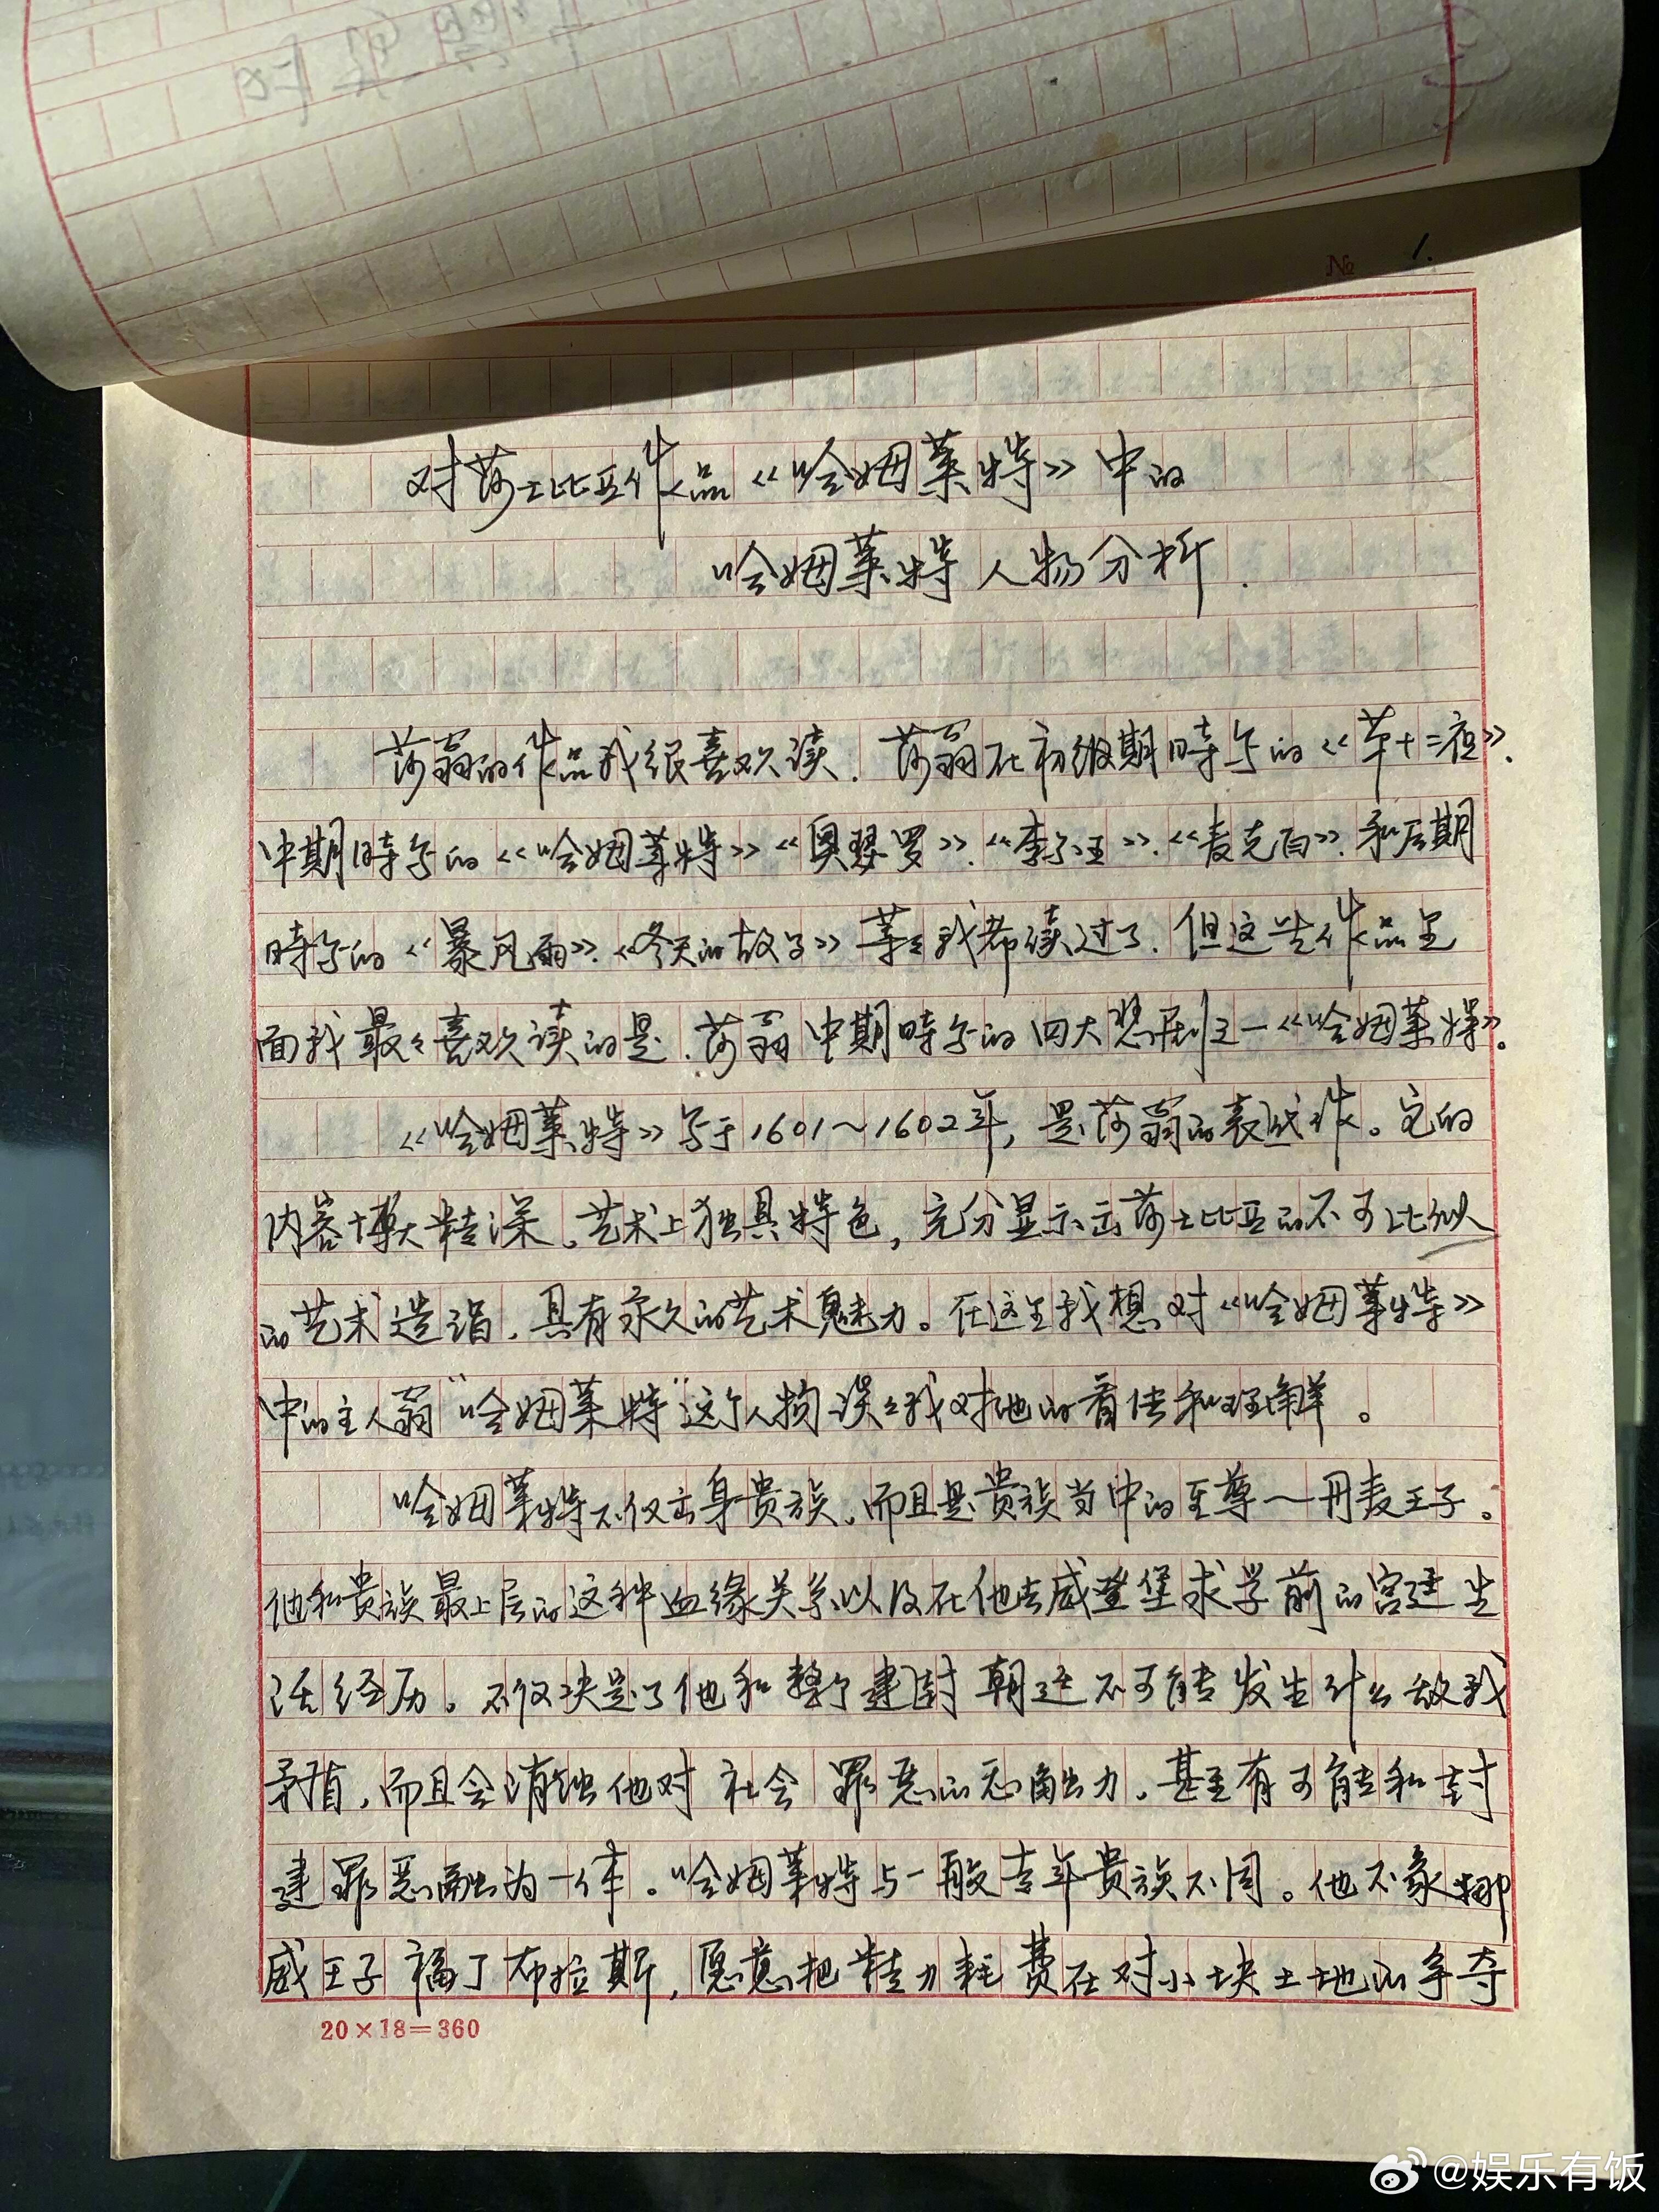 No 1.
对莎士比亚作品《哈姆莱特》中的
哈姆莱特人物分析.
莎翁的作品我很喜欢读.莎翁在初级期時写的《第十二夜》.
中期時写的《哈姆莱特》《奥瑟罗》.《李尔王》.《麦克白》.和后期
時写的《暴风雨》.《冬天的故事》等等我都读过了.但这些作品里
面我最最喜欢读的是.莎翁中期時写的四大悲剧之一《哈姆莱特》。
《哈姆莱特》写于1601～1602年,是莎翁的代表作。它的
内容博大精深.艺术上独具特色,充分显示出莎士比亚的不可比拟
的艺术造诣.具有永久的艺术魅力。在这里我想对《哈姆莱特》
中的主人翁“哈姆莱特”这个人物谈谈我对他的看法和理解。
哈姆莱特不仅出身贵族.而且是贵族当中的至尊—丹麦王子。
他和贵族最上层的这种血缘关系以及在他去威登堡求学前的宫廷生
活经历。不仅决定了他和整个封建朝廷不可能发生什么敌我
矛盾.而且会消蚀他对社会罪恶的触力.甚至有可能和封
建罪恶融为一体。哈姆莱特与一般青年贵族不同。他不象挪
威王子福丁布拉斯,愿意把精力耗费在对小块土地的争夺
20×18=360
@娱乐有饭